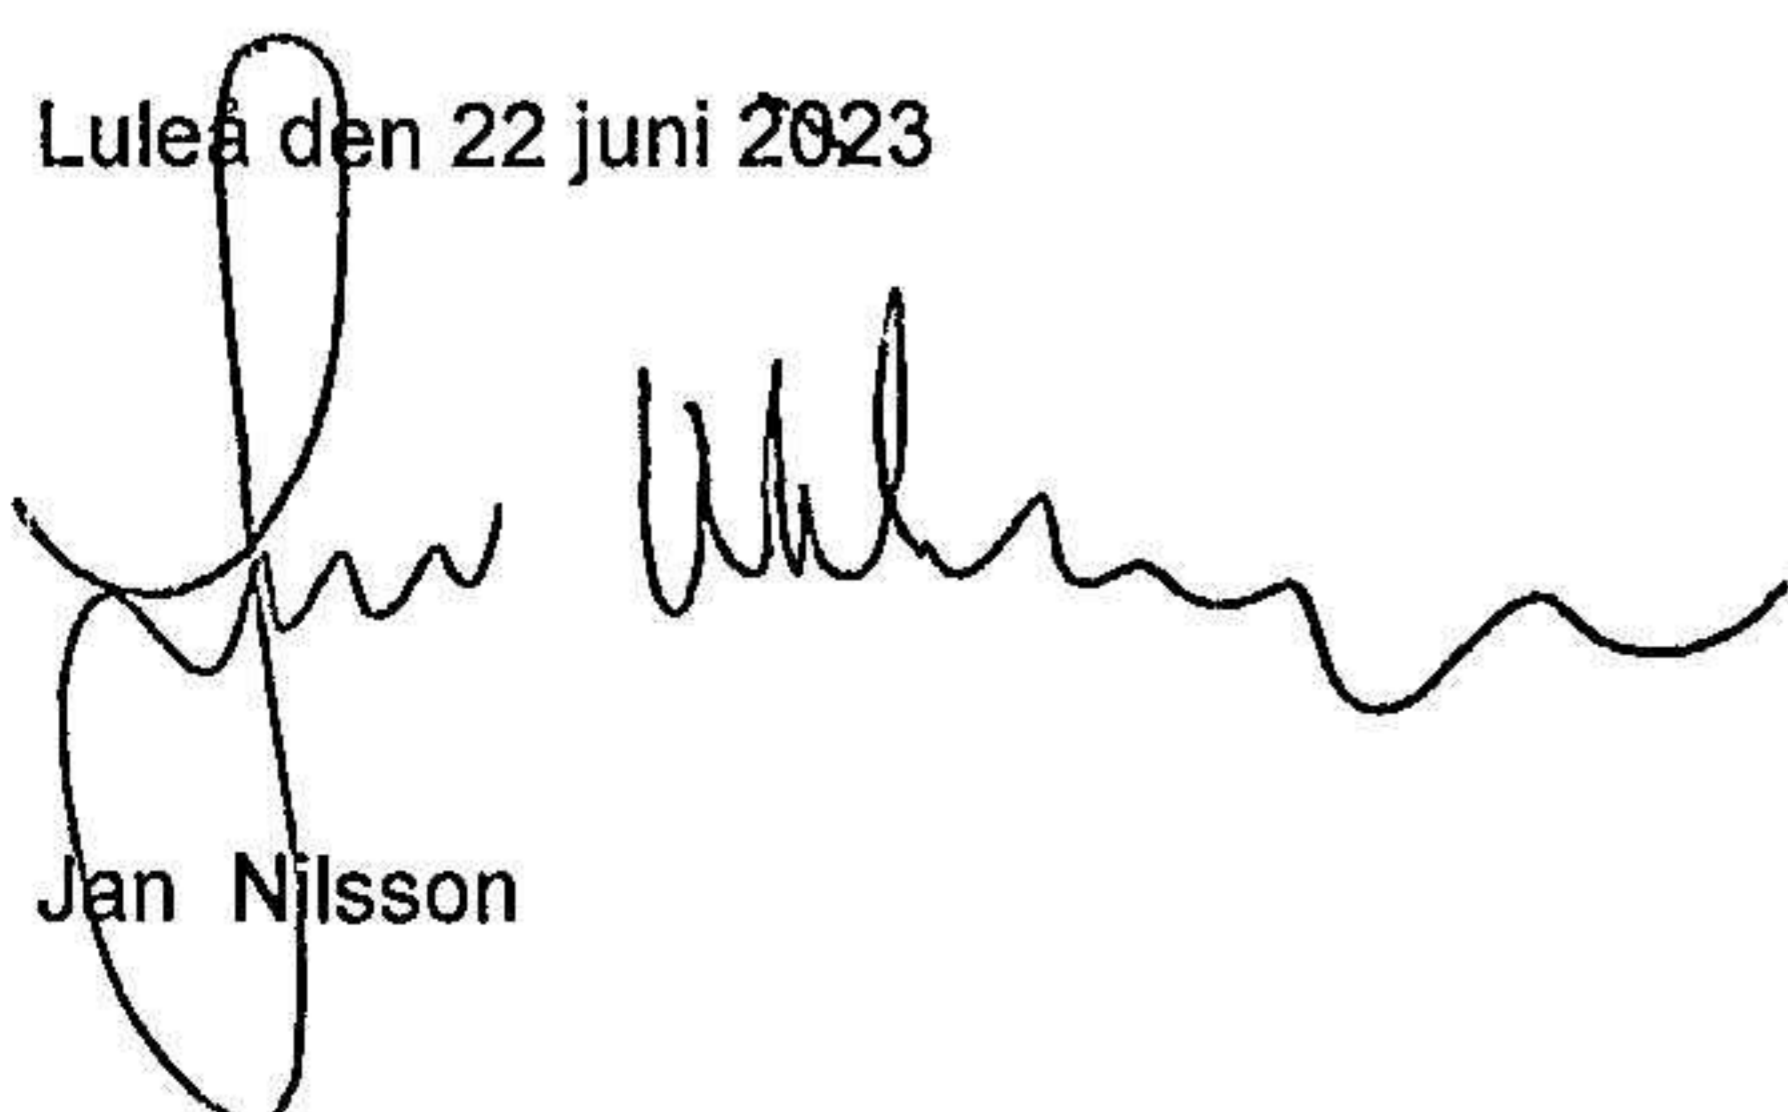 Luleå den 22 juni 2023
Jan Nilsson